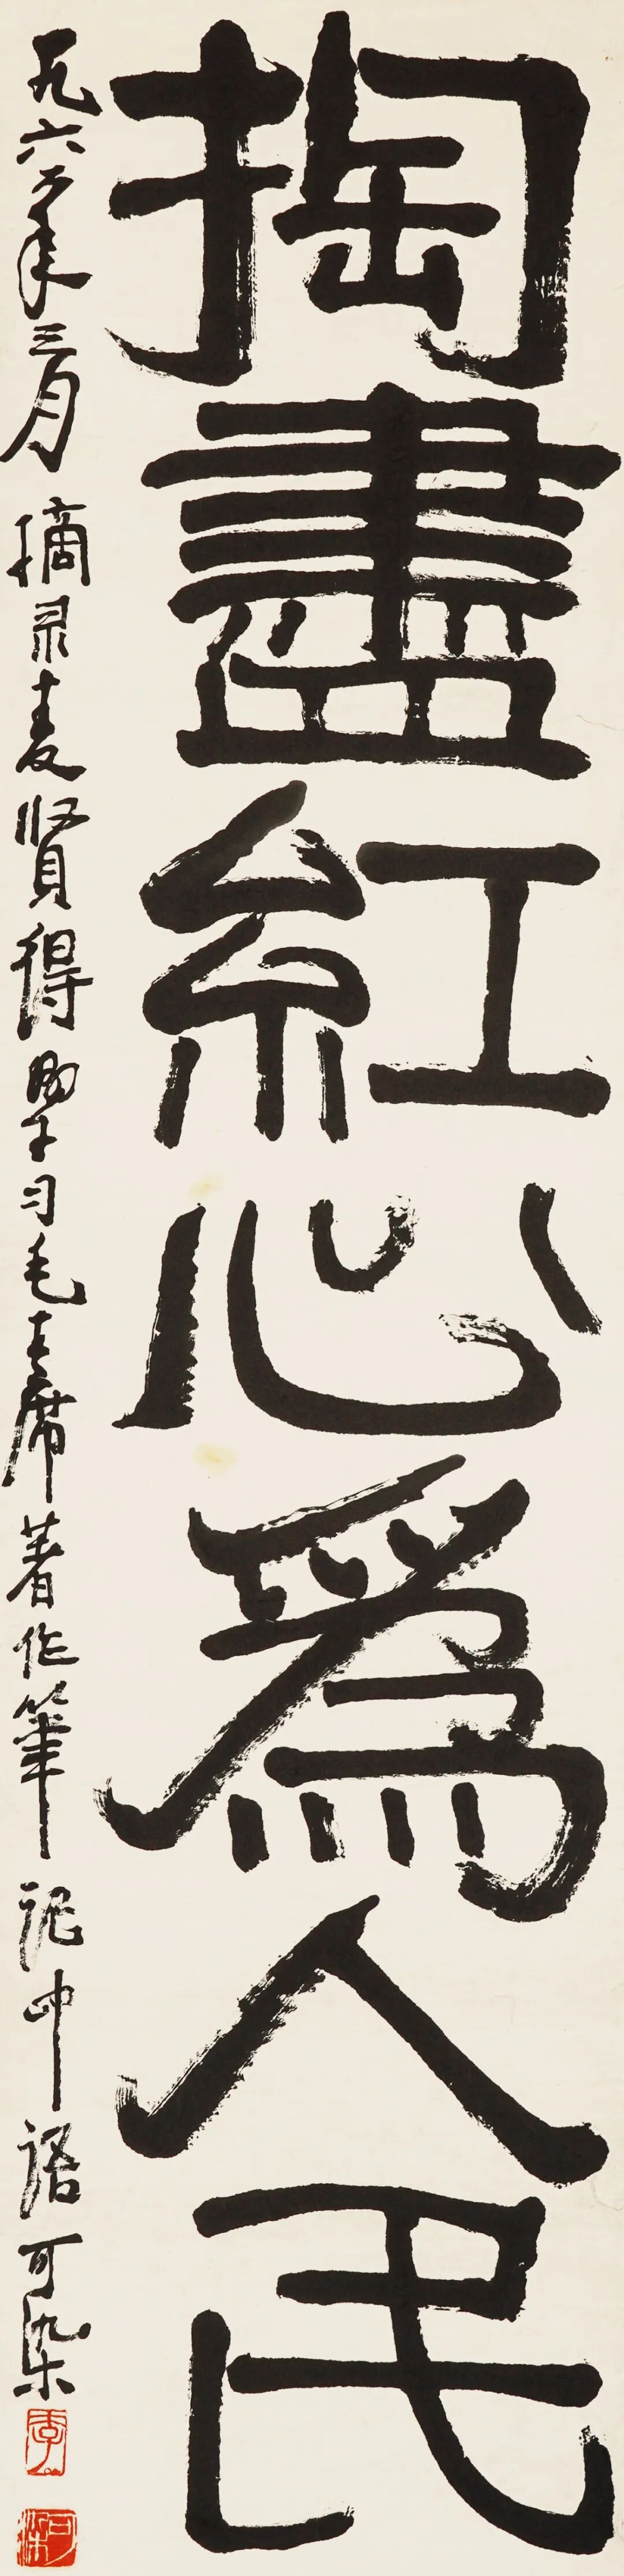 掏盡紅心爲人民
一九六六年三月摘录麦賢得學习毛主席著作筆記中語可染
李
可染